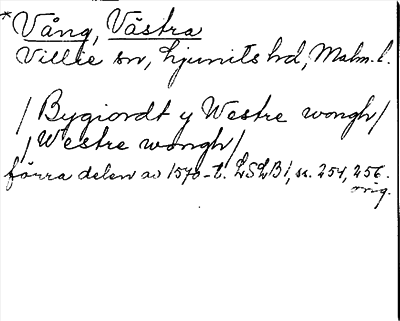 *Vång, Västra
Villie sn, Ljunits hd, Malm. l.
/Bygiordt y Westre wongh/
/Westre wongh/
förra delen av 1570-t. LSLB1, s. 254, 256.
orig.